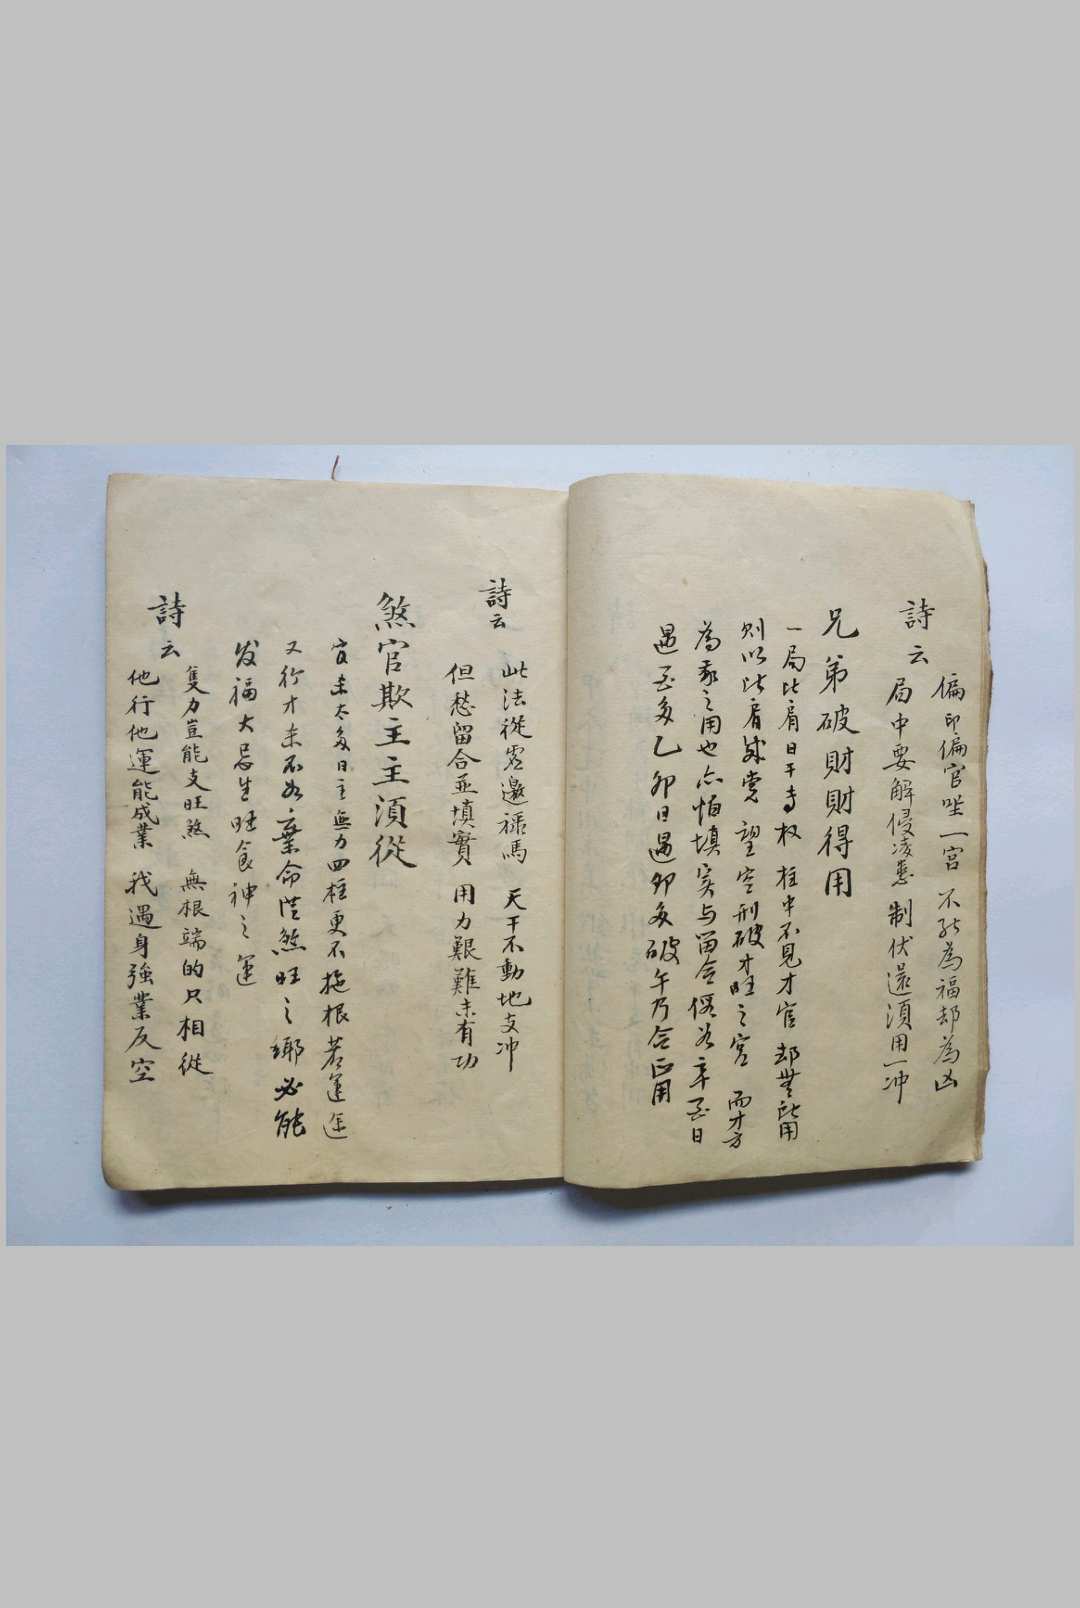 詩云
偏印偏官坐一宮 不能為福却為凶
局中要解侵凌患 制伏還須用一冲
兄弟破財財得用
一局比肩日干專权 柱中不見才官 却無所用
則以比肩成党 望空刑破才旺之宮 而才方
為我之用也 亦怕填实与留合 假如辛酉日
遇酉多乙卯日遇卯多破午乃合正用
詩云
此法從虛邀祿馬 天干不動地支冲
但愁留合並填實 用力艱難未有功
煞官欺主主須從
官来太多日主無力四柱更不拖根若運途
又行才来不如棄命從煞旺之鄉必能
发福大忌生旺食神之運
詩云
隻力豈能支旺煞 無根端的只相從
他行他運能成業 我遇身強業反空